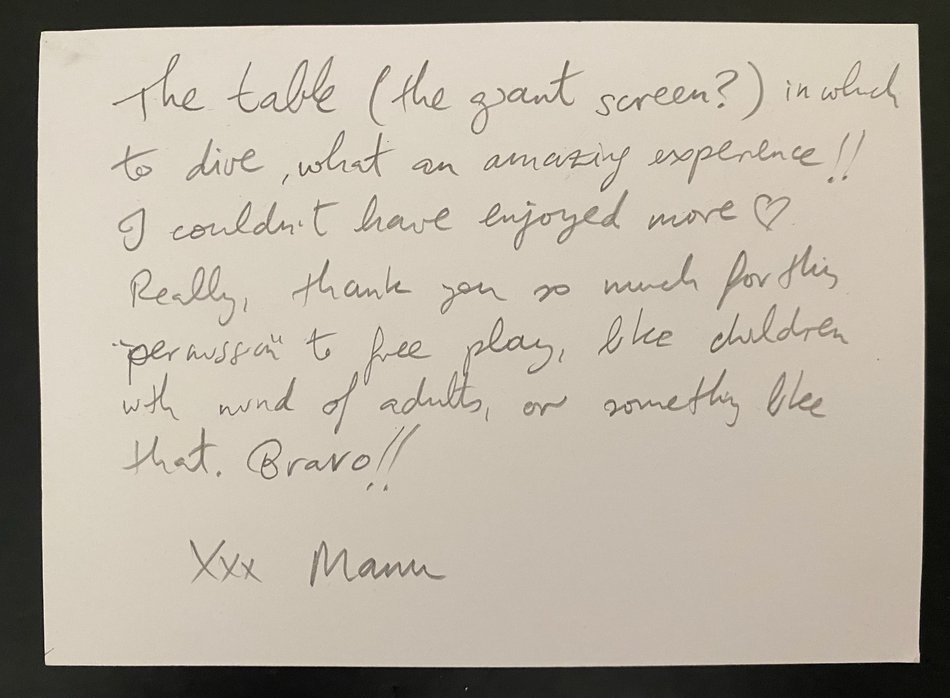 The table (the giant screen?) in which
to dive, what an amazing experience!!
I couldn't have enjoyed more ♡
Really, thank you so much for this
"permission" to free play, like children
with mind of adults, or something like
that. Bravo!!
Xxx Manu